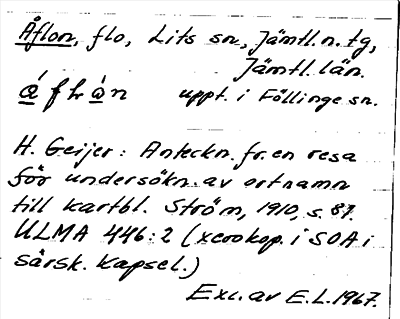 Åflon, flo, Lits sn, Jämtl. n. tg,
Jämtl. län.
uppt. i Föllinge sn.
H. Geijer: Anteckn. fr. en resa
för undersökn. av ortnamn
till kartbl. Ström, 1910, s. 87.
ULMA 446:2 (xerokop. i SOA i
särsk. kapsel.)
Exc. av E.L. 1967.